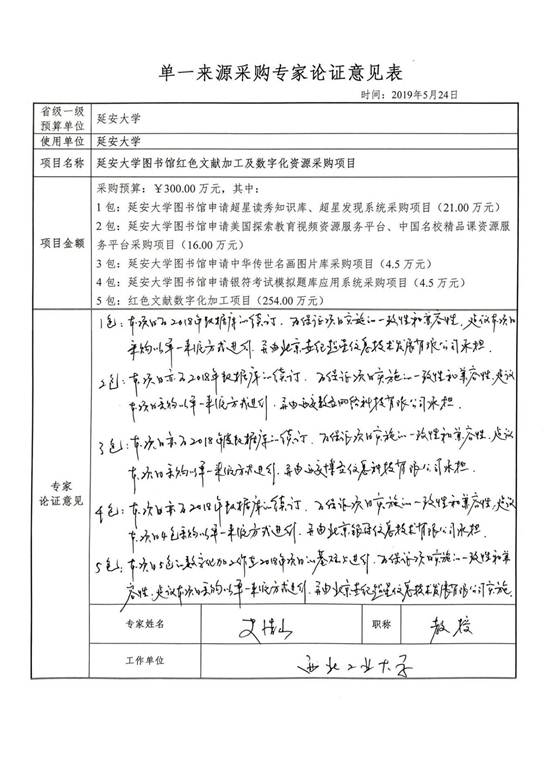 单一来源采购专家论证意见表
时间：2019年5月24日
省级一级预算单位 延安大学
使用单位 延安大学
项目名称 延安大学图书馆红色文献加工及数字化资源采购项目
项目金额
采购预算：￥300.00 万元，其中：
1 包：延安大学图书馆申请超星读秀知识库、超星发现系统采购项目（21.00 万元）
2 包：延安大学图书馆申请美国探索教育视频资源服务平台、中国名校精品课资源服
务平台采购项目（16.00 万元）
3 包：延安大学图书馆申请中华传世名画图片库采购项目（4.5 万元）
4 包：延安大学图书馆申请银符考试模拟题库应用系统采购项目（4.5 万元）
5 包：红色文献数字化加工项目（254.00 万元）
专家
论证意见
1包：本次项目为2018年数据库的续订，为保证项目实施的一致性和兼容性，建议本次项目
采购以单一来源方式进行，并由北京世纪超星信息技术发展有限公司承担。
2包：本次项目亦为2018年数据库的续订，为保证项目实施的一致性和兼容性，建议
本次项目采购以单一来源方式进行，并由西安 网络科技有限公司承担。
3包：本次项目亦为2018年度数据库的续订，为保证项目实施的一致性和兼容性，建议
本次项目采购以单一来源方式进行，并由西安博 信息科技有限公司承担。
4包：本次项目亦为2018年数据库的续订，为保证项目实施的一致性和兼容性，建议
本次项目4包采购以单一来源方式进行，并由北京银符信息技术有限公司承担。
5包：本次项目5包的数字化加工作在2018年项目的基础上进行，为保证项目实施的一致性和兼
容性，建议本次项目采购以单一来源方式进行，并由北京世纪超星信息技术发展有限公司实施。
专家姓名 职称 教授
工作单位 西北工业大学